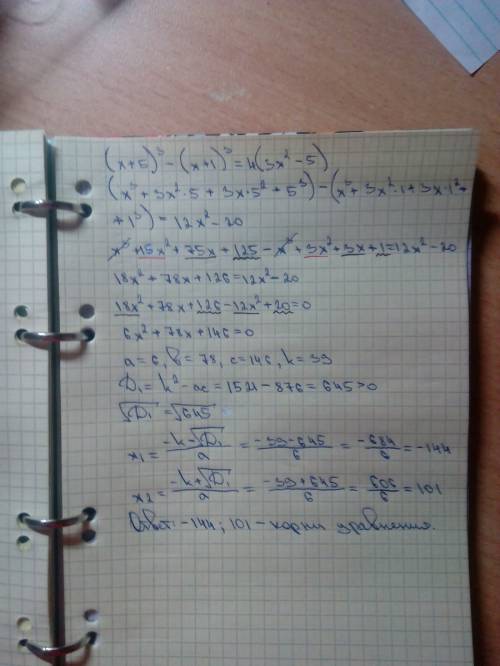 (x+5)³ - (x+1)³ = 4(3x² - 5)
(x³ + 3x²·5 + 3x·5² + 5³) - (x³ + 3x²·1 + 3x·1² +
+ 1³) = 12x² - 20
x³ + 15x² + 75x + 125 - x³ + 3x² + 3x + 1 = 12x² - 20
18x² + 78x + 126 = 12x² - 20
18x² + 78x + 126 - 12x² + 20 = 0
6x² + 78x + 146 = 0
a = 6, b = 78, c = 146, k = 39
D₁ = k² - ac = 1521 - 876 = 645 > 0
√D₁ = √645
x₁ = (-k - √D₁)/a = (-39 - 645)/6 = (-684)/6 = -144
x₂ = (-k + √D₁)/a = (-39 + 645)/6 = 606/6 = 101
Ответ: -144; 101 - корни уравнения.